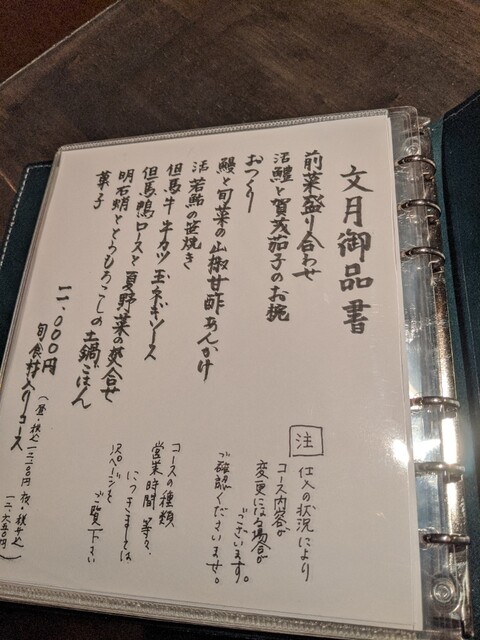 文月御品書
前菜盛り合わせ
活鱧と賀茂茄子のお椀
おつくり
鰻と旬菜の山椒甘酢あんかけ
活若鮎の笹焼き
但馬牛 牛カツ 玉ネギソース
但馬鴨ロースと夏野菜の炊合せ
明石蛸ととうもろこしの土鍋ごはん
菓子
一一、〇〇〇円
旬食材入りコース
注 仕入の状況により
コース内容が
変更になる場合が
ございます。
ご確認くださいませ。
コースの種類
営業時間 等々
につきましては
次ページを
ご覧下さい